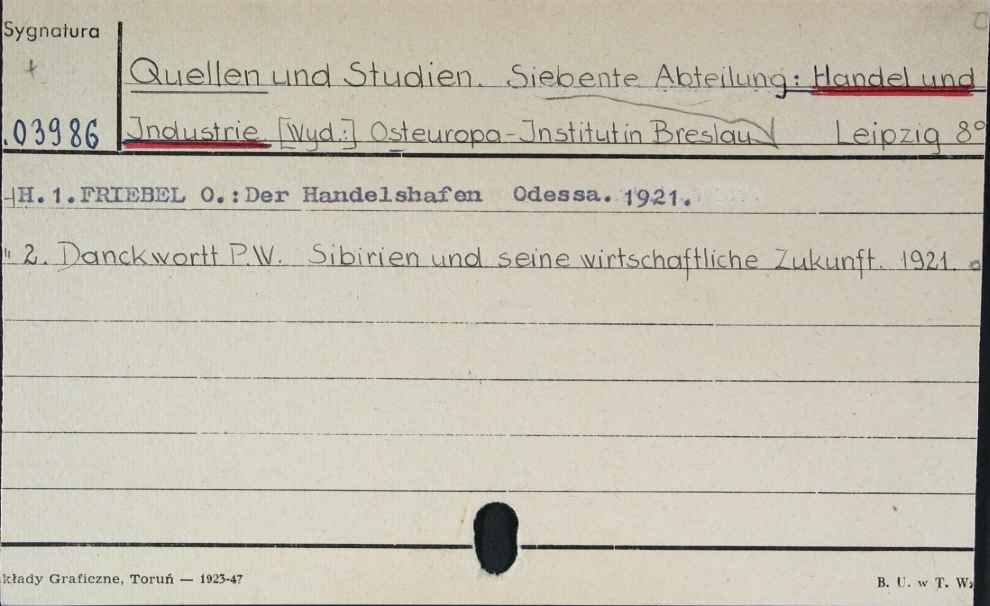 Sygnatura
Quellen und Studien. Siebente Abteilung: Handel und
.03986 Jndustrie [Wyd.:] Osteuropa-Jnstitut in Breslau Leipzig 8°
H. 1. FRIEBEL O.: Der Handelshafen Odessa. 1921.
" 2. Danckwortt P.W. Sibirien und seine wirtschaftliche Zukunft. 1921.
kłady Graficzne, Toruń — 1923-47 B. U. w T. W